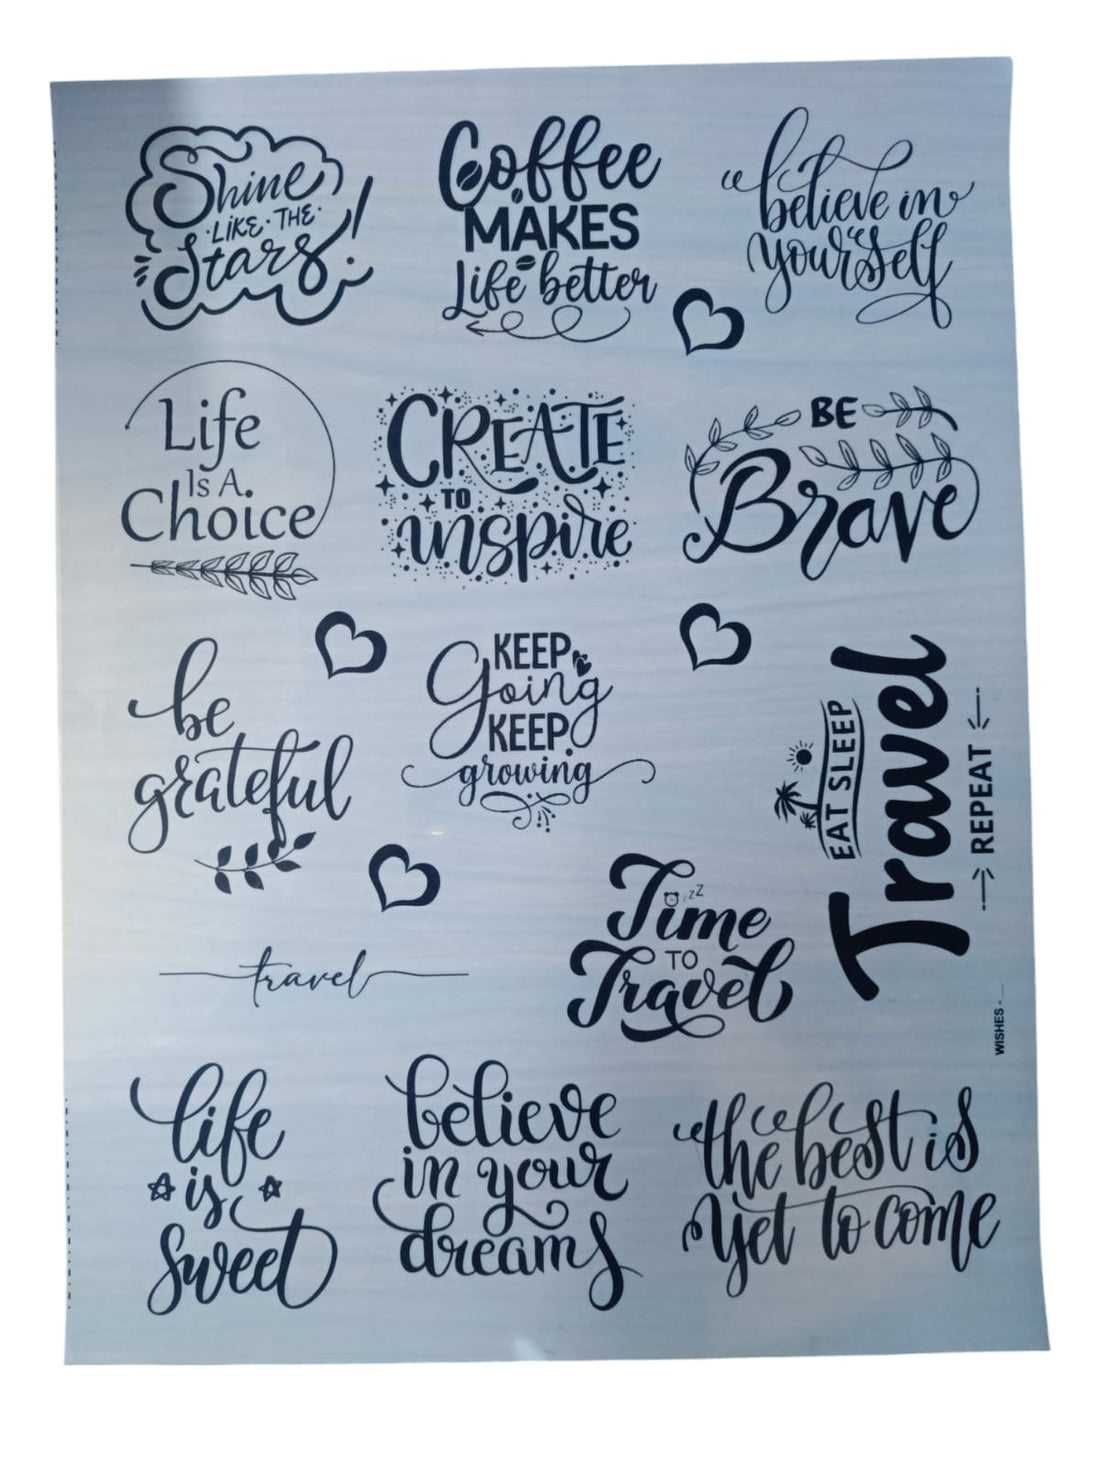 Shine
LIKE · THE
Stars!
Coffee
MAKES
Life better
believe in
yourself
Life
Is A
Choice
CREATE
TO
inspire
BE
Brave
be
grateful
KEEP
Going
KEEP
growing
EAT SLEEP
Travel
REPEAT
travel
Time
zzZ
TO
Travel
WISHES -
life
is
sweet
believe
in your
dreams
the best is
yet to come